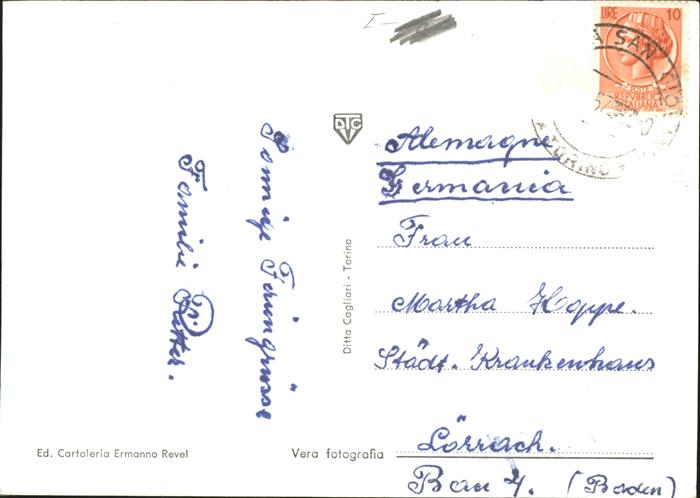 I-
LIRE 10
POSTE
REPVBBLICA
ITALIANA
SAN
TORINO
DTC
Sonnige Feriengrüsse
Familie Dr. Ritter.
Ditta Cagliari - Torino
Alemagne
Germania
Frau
Martha Hoppe.
Städt. Krankenhaus
Lörrach.
Bau 4. (Baden)
Ed. Cartoleria Ermanno Revel
Vera fotografia